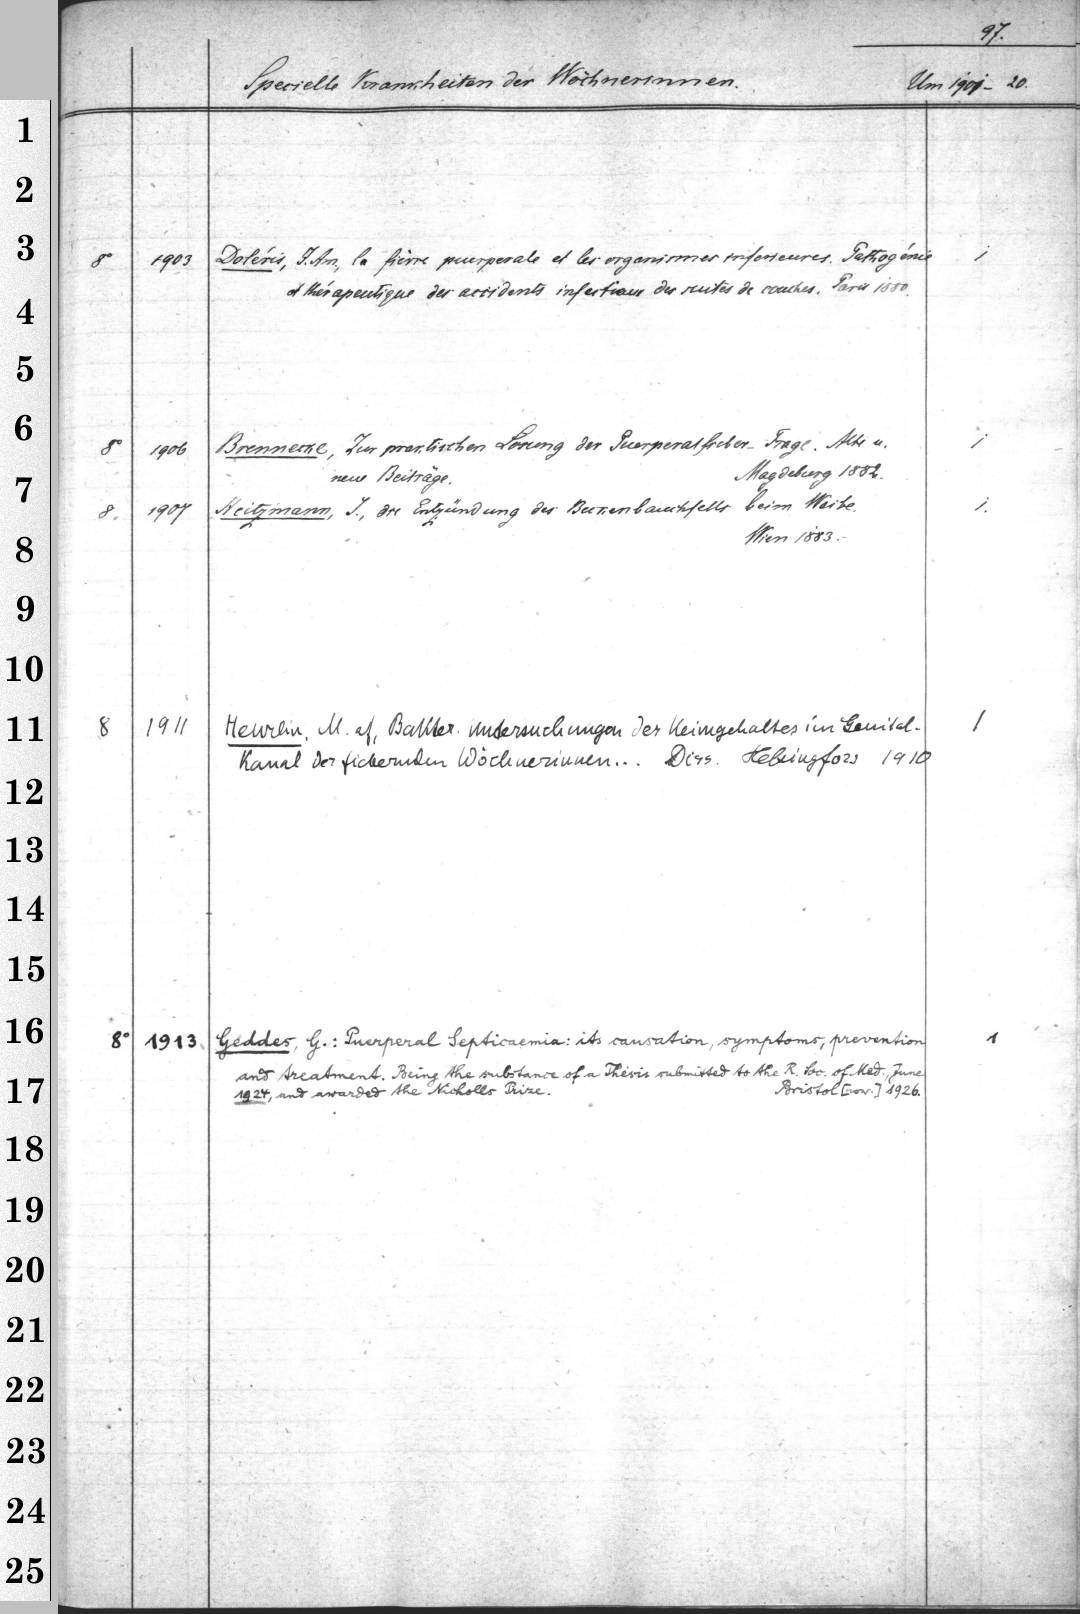 97.
Specielle Krankheiten der Wöchnerinnen. Um 1901-20.
1
2
3
8° 1903 Doléris, J. Am., la fièvre puerperale et les organismes inferieures. Pathogénie 1
et thérapeutique des accidents infectieux des suites de couches. Paris 1880.
4
5
6
8° 1906 Brennecke, Zur praktischen Lösung der Puerperalfieber-Frage. Alte u. 1
neue Beiträge. Magdeburg 1882.
7
8. 1907 Heitzmann, J., die Entzündung des Beckenbauchfells beim Weibe. 1.
Wien 1883.-
8
9
10
11
8 1911 Heurlin, M. af, Bakter. Untersuchungen des Keimgehaltes im Genital- 1
Kanal der fiebernden Wöchnerinnen... Diss. Helsingfors 1910
12
13
14
15
16
8° 1913 Geddes, G.: Puerperal Septicaemia: its causation, symptoms, prevention 1
and treatment. Being the substance of a Thesis submitted to the R. Soc. of Med., June
17
1924, and awarded the Nicholls Prize. Bristol [usw.] 1926.
18
19
20
21
22
23
24
25